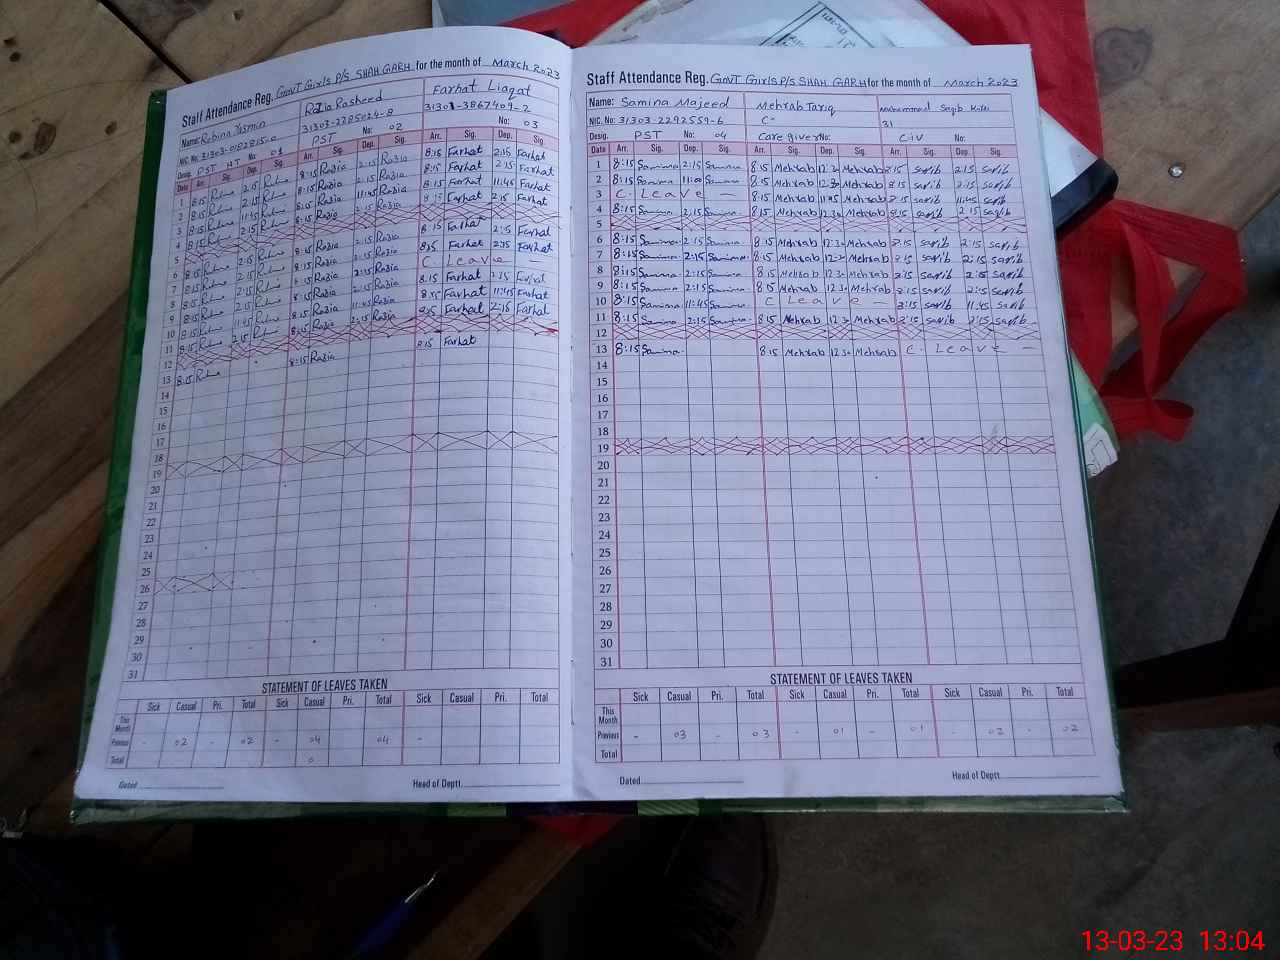 Staff Attendance Reg. Govt Girls P/S SHAH GARH for the month of March 2023
Name: Robina Yasmin Razia Rasheed Farhat Liaqat
NIC. No: 31303-0152815-0 31303-2285024-8 31301-3867409-2
Desig. PST HT No: 01 PST No: 02 No: 03
Date Arr. Sig. Dep. Sig. Arr. Sig. Dep. Sig. Arr. Sig. Dep. Sig.
1 8:15 2:15 8:15 Razia 2:15 Razia 8:15 Farhat 2:15 Farhat
2 8:15 2:15 8:15 Razia 2:15 Razia 8:15 Farhat 2:15 Farhat
3 8:15 11:45 8:15 Razia 11:45 Razia 8:15 Farhat 11:45 Farhat
4 8:15 2:15 8:15 Razia 2:15 Razia 8:15 Farhat 2:15 Farhat
5
6 8:15 2:15 8:15 Razia 2:15 Razia 8:15 Farhat 2:15 Farhat
7 8:15 2:15 8:15 Razia 2:15 Razia 8:15 Farhat 2:15 Farhat
8 8:15 2:15 8:15 Razia 2:15 Razia C Leave –
9 8:15 2:15 8:15 Razia 2:15 Razia 8:15 Farhat 2:15 Farhat
10 8:15 11:45 8:15 Razia 11:45 Razia 8:15 Farhat 11:45 Farhat
11 8:15 2:15 8:15 Razia 2:15 Razia 8:15 Farhat 2:15 Farhat
12
13 8:15 8:15 Razia 8:15 Farhat
14
15
16
17
18
19
20
21
22
23
24
25
26
27
28
29
30
31
STATEMENT OF LEAVES TAKEN
Sick Casual Pri. Total Sick Casual Pri. Total Sick Casual Pri. Total
This Month
Previous - 02 - 02 - 04 04 -
Total 0
Dated Head of Deptt.
Staff Attendance Reg. Govt Girls P/S SHAH GARH for the month of March 2023
Name: Samina Majeed Mehrab Tariq Muhammad Saqib
NIC. No: 31303-2292559-6 C- 31
Desig. PST No: 04 Care giver No: C iv No:
Date Arr. Sig. Dep. Sig. Arr. Sig. Dep. Sig. Arr. Sig. Dep. Sig.
1 8:15 Samina 2:15 Samina 8:15 Mehrab 12:30 Mehrab 8:15 saqib 2:15 saqib
2 8:15 Samina 11:00 Samina 8:15 Mehrab 12:30 Mehrab 8:15 saqib 2:15 saqib
3 C. Leave – 8:15 Mehrab 11:45 Mehrab 8:15 saqib 11:45 saqib
4 8:15 Samina 2:15 Samina 8:15 Mehrab 12:30 Mehrab 8:15 saqib 2:15 saqib
5
6 8:15 Samina 2:15 Samina 8:15 Mehrab 12:30 Mehrab 8:15 saqib 2:15 saqib
7 8:15 Samina 2:15 Samina 8:15 Mehrab 12:30 Mehrab 8:15 saqib 2:15 saqib
8 8:15 Samina 2:15 Samina 8:15 Mehrab 12:30 Mehrab 8:15 saqib 2:15 saqib
9 8:15 Samina 2:15 Samina 8:15 Mehrab 12:30 Mehrab 8:15 saqib 2:15 saqib
10 8:15 Samina 11:45 Samina C Leave – 8:15 saqib 11:45 saqib
11 8:15 Samina 2:15 Samina 8:15 Mehrab 12:30 Mehrab 8:15 saqib 2:15 saqib
12
13 8:15 Samina 8:15 Mehrab 12:30 Mehrab C. Leave –
14
15
16
17
18
19
20
21
22
23
24
25
26
27
28
29
30
31
STATEMENT OF LEAVES TAKEN
Sick Casual Pri. Total Sick Casual Pri. Total Sick Casual Pri. Total
This Month
Previous - 03 - 03 - 01 - 01 - 02 - 02
Total
Dated Head of Deptt.
13-03-23 13:04